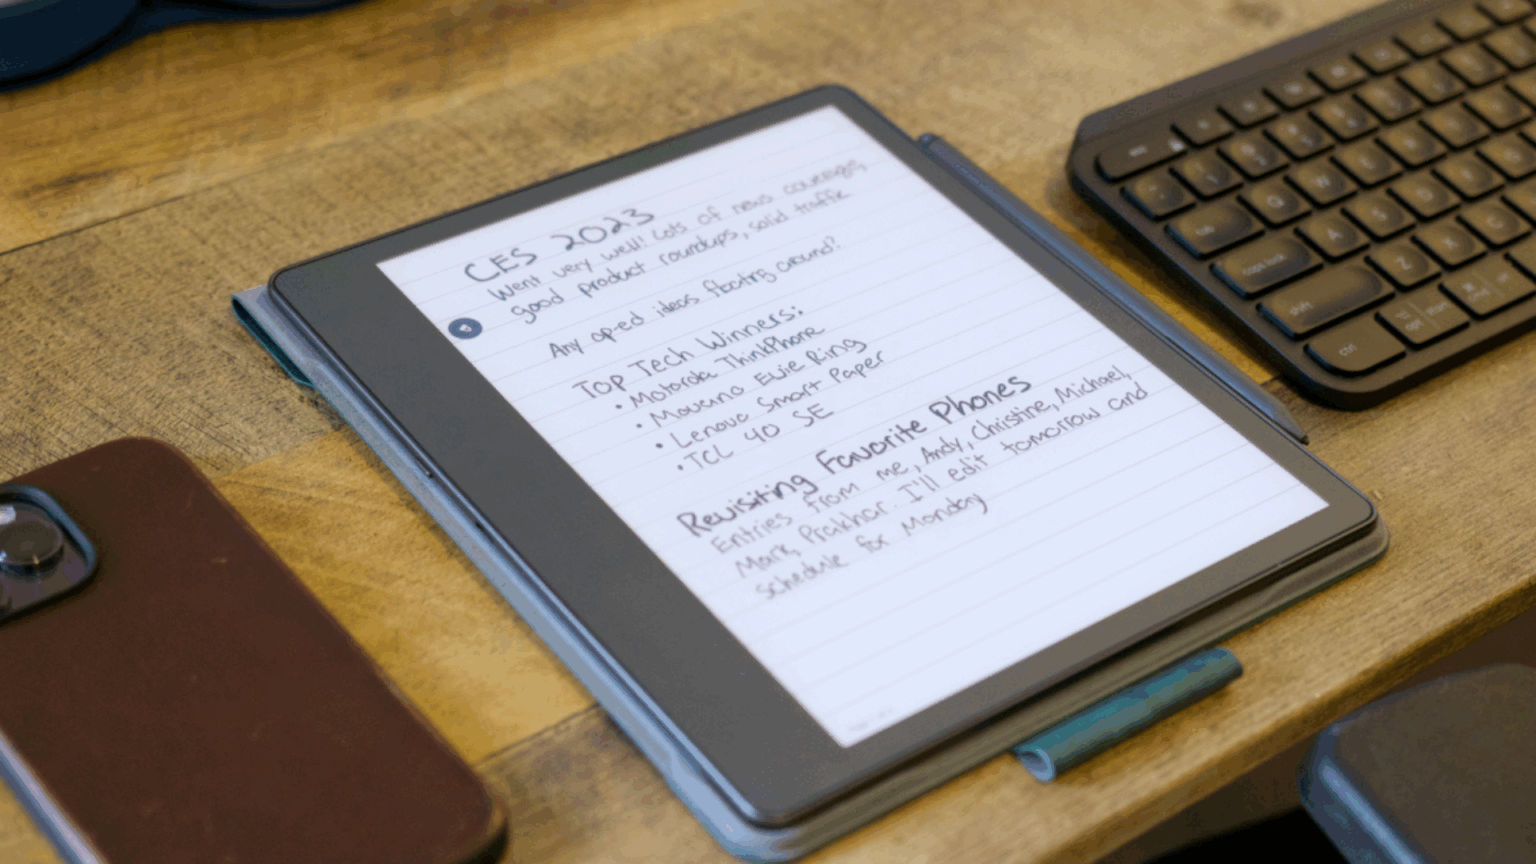 CES 2023
Went very well! Lots of news coverage,
good product roundups, solid traffic
Any op-ed ideas floating around?
Top Tech Winners:
• Motorola ThinkPhone
• Movano Evie Ring
• Lenovo Smart Paper
• TCL 40 SE
Revisiting Favorite Phones
Entries from me, Andy, Christine, Michael,
Mark, Prakhar. I'll edit tomorrow and
schedule for Monday
esc
tab
Q
W
caps lock
A
S
shift
Z
X
C
ctrl
opt